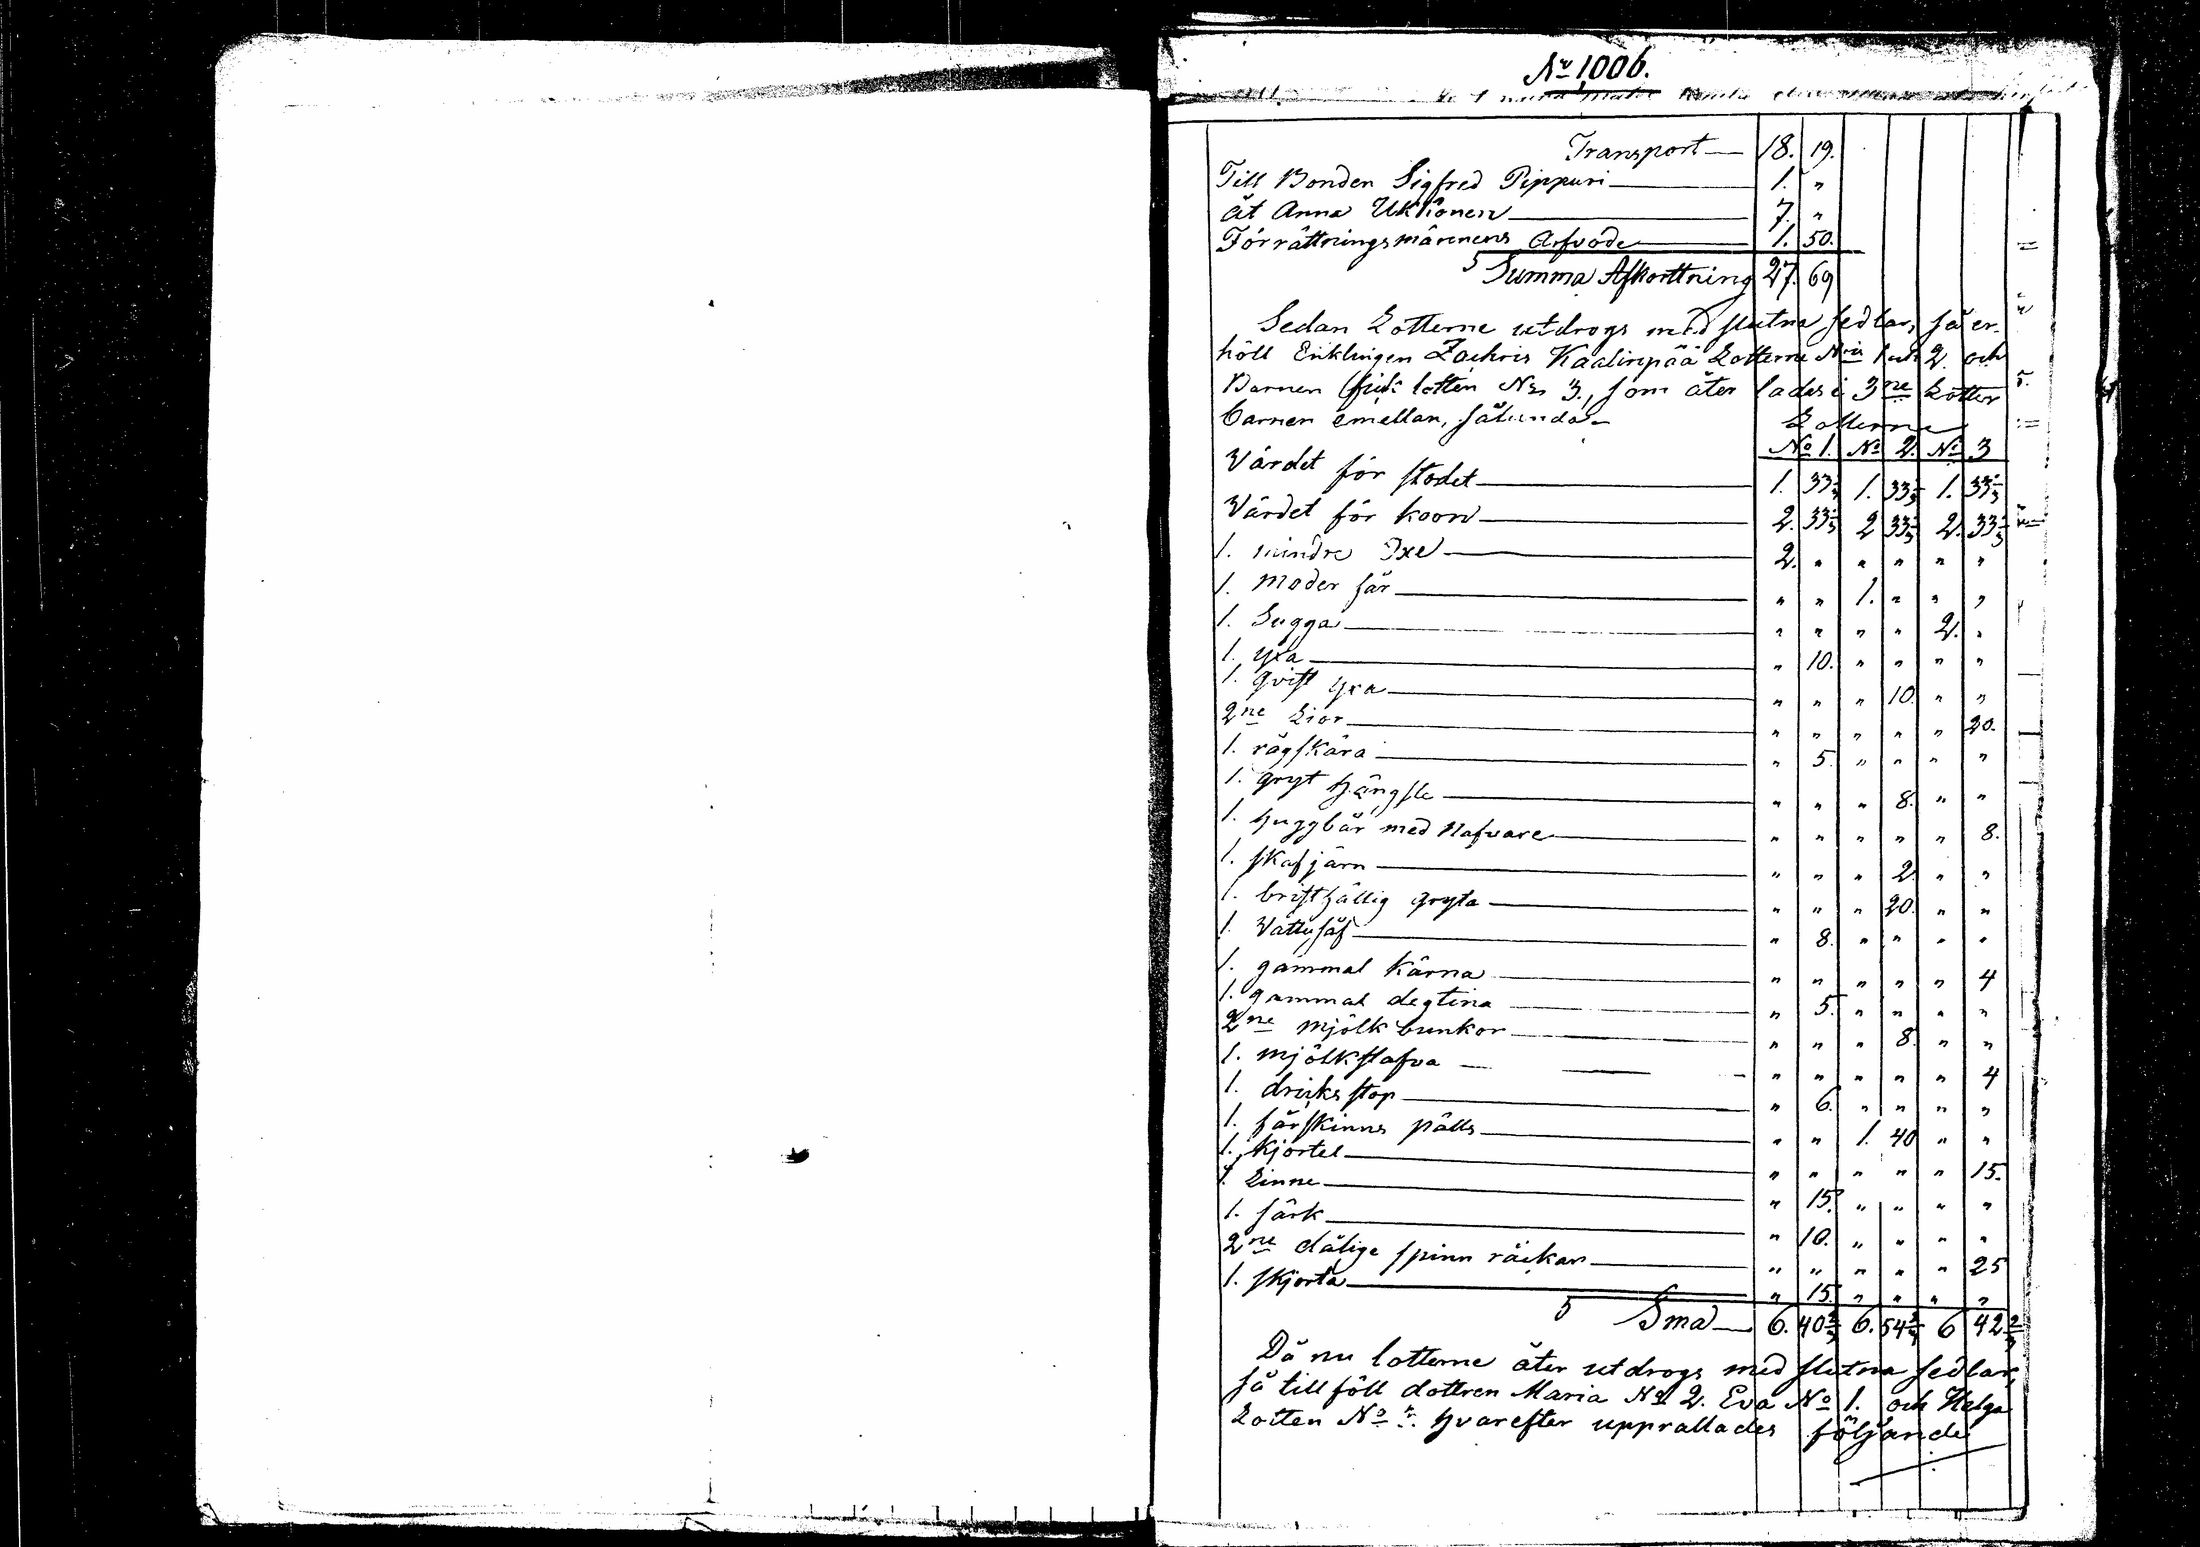 No 1006.
Transport — 18. 19.
Till Bonden Sigfred Pippuri — 1. "
åt Anna Ukkonen — 7. "
Förrättningsmännens Arfvode — 1. 50.
Summa Afkorttning 27. 69
Sedan Lotterne utdrogs med slutna sedlar, så er-
höll Enklingen Zachris Kaalinpää Lotterne N:ris 1 och 2 och
Barnen fick lotten No 3, som åter lades i 3ne Lotter
barnen emellan, sålunda –
Lotterne
No 1. No 2. No 3
Värdet för stodet — 1. 33⅓ 1. 33⅓ 1. 33⅓
Värdet för koon — 2. 33⅓ 2 33⅓ 2. 33⅓
1. mindre Oxe — 2. " " " " "
1. moder får — " " 1. " " "
1. Sugga — " " " " 2. "
1. yxa — " 10. " " " "
1. qvist yxa — " " " 10. " "
2ne Lior — " " " " " 20.
1. rågskära — " 5. " " " "
1. gryt hängsle — " " " 8. " "
1. huggbår med Nafvare — " " " " " 8.
1. skafjärn — " " " 2. " "
1. bristhällig gryta — " " " 20. " "
1. Vattusåf — " 8. " " " "
1. gammal kärna — " " " " " 4
1. gammal degtina — " 5. " " " "
2ne mjölk bunkor — " " " 8. " "
1. mjölkstafva — " " " " " 4
1. dricks stop — " 6. " " " "
1. fårskinns pälls — " " 1. 40 " "
1. kjortel — " " " " " 15.
1. Linne — " 15. " " " "
1. särk — " 10. " " " "
2ne dålige spinn råckar — " " " " " 25
1. skjorta — " 15. " " " "
Sma — 6. 40⅔ 6. 54⅔ 6 42⅔
Då nu lotterne åter utdrogs med slutna sedlar,
så tillföll dottren Maria No 2. Eva No 1. och Helga
Lotten No hvarefter upprallades följande